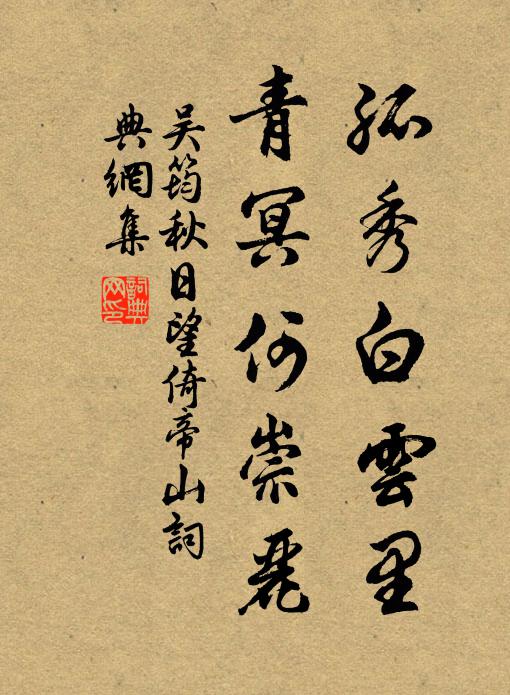 孤秀白雲里
青冥何崇麗
吴筠秋日望倚帝山詞
典網集
詞典
网印